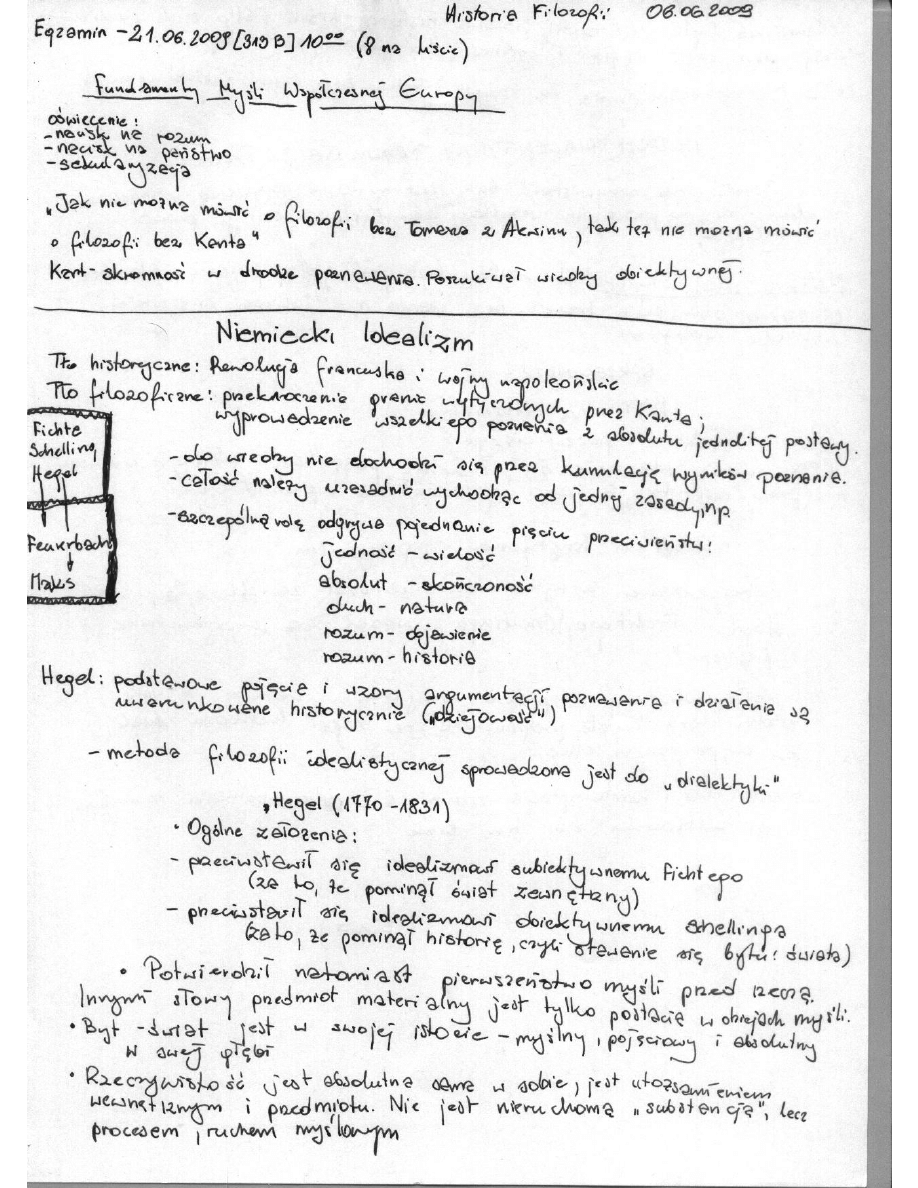 Historia Filozofii 06.06.2009
Egzamin - 21.06.2009 [319 B] 10⁰⁰ (8 na liście)
Fundamenty Myśli Współczesnej Europy
oświecenie:
- nacisk na rozum
- nacisk na państwo
- sekularyzacja
"Jak nie można mówić o filozofii bez Tomasza z Akwinu, tak też nie można mówić
o filozofii bez Kanta"
Kant - skromność w drodze poznawania. Poszukiwał wiedzy obiektywnej.
Niemiecki Idealizm
Tło historyczne: Rewolucja francuska i wojny napoleońskie
Tło filozoficzne: przekroczenie granic wytyczonych przez Kanta;
wyprowadzenie wszelkiego poznania z absolutu jednolitej postawy.
Fichte
Schelling
Hegel
Feuerbach
Maks
- do wiedzy nie dochodzi się przez kumulację wyników poznania.
- całość należy uzasadnić wychodząc od jednej zasady, np.
- szczególną rolę odgrywa pojednanie pięciu przeciwieństw:
jedność - wielość
absolut - skończoność
duch - natura
rozum - objawienie
rozum - historia
Hegel: podstawowe pojęcia i wzory argumentacji poznawania i działania są
uwarunkowane historycznie ("dziejowość")
- metoda filozofii idealistycznej sprowadzona jest do "dialektyki"
Hegel (1770 - 1831)
• Ogólne założenia:
- przeciwstawił się idealizmowi subiektywnemu Fichtego
(za to, że pominął świat zewnętrzny)
- przeciwstawił się idealizmowi obiektywnemu Schellinga
(za to, że pominął historię, czyli stawanie się bytu i świata)
• Potwierdził natomiast pierwszeństwo myśli przed rzeczą.
Innymi słowy przedmiot materialny jest tylko postacią w obrębach myśli.
• Byt - świat jest w swojej istocie - myślny, pojęciowy i absolutny
w swej głębi
• Rzeczywistość jest absolutna sama w sobie, jest utożsamieniem
wewnętrznym i przedmiotu. Nie jest nieruchomą "substancją", lecz
procesem, ruchem myślowym